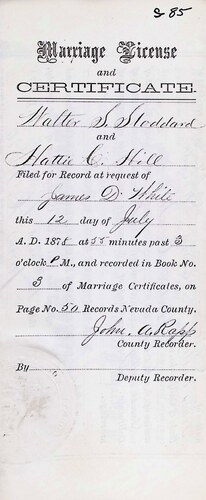 & 85
Marriage License
and
CERTIFICATE.
Walter S. Stoddard
and
Hattie C. Hill
Filed for Record at request of
James D. White
this 12 day of July
A. D. 1878 at 55 minutes past 3
o'clock P M., and recorded in Book No.
3 of Marriage Certificates, on
Page No. 50 Records Nevada County.
John. A. Rapp
County Recorder.
By
Deputy Recorder.